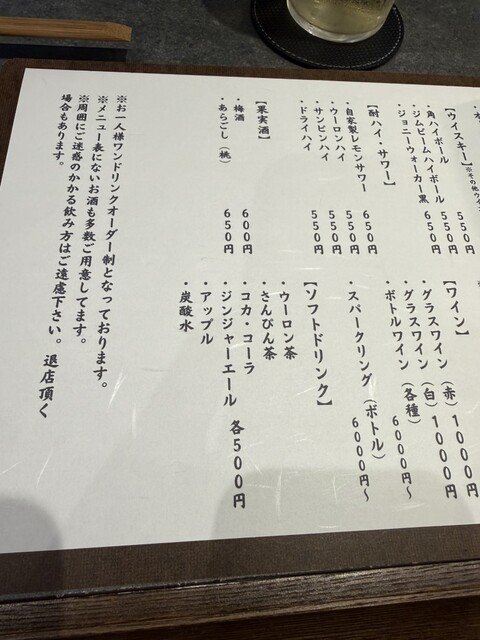 【ウイスキー】
・角ハイボール 550円
・ジムビームハイボール 550円
・ジョニーウォーカー黒 650円
【酎ハイ・サワー】
・自家製レモンサワー 650円
・ウーロンハイ 550円
・サンピンハイ 550円
・ドライハイ 550円
【果実酒】
・梅酒 600円
・あらごし(桃) 650円
【ワイン】
・グラスワイン(赤) 1000円
・グラスワイン(白) 1000円
・ボトルワイン(各種) 6000円~
・スパークリング(ボトル) 6000円~
【ソフトドリンク】
・ウーロン茶
・さんぴん茶
・コカ・コーラ
・ジンジャーエール 各500円
・アップル
・炭酸水
※お一人様ワンドリンクオーダー制となっております。
※メニュー表にないお酒も多数ご用意してます。
※周囲にご迷惑のかかる飲み方はご遠慮下さい。退店頂く
場合もあります。